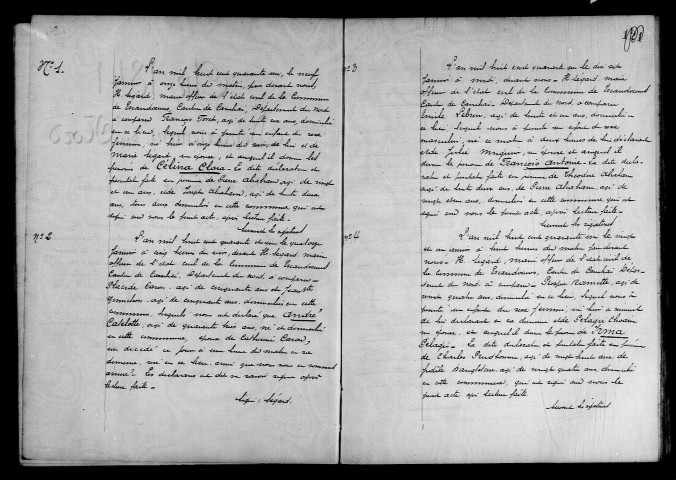 N° 1.
L'an mil huit cent quarante un, le neuf
Janvier à onze heures du matin, par devant nous,
H. Legard, maire officier de l'état civil de la Commune
de Escaudoeuvres, Canton de Cambrai, Département du Nord
a comparu François agé de trente un ans, domicilié
en ce lieu, lequel nous a présenté un enfant du sexe
féminin, né hier à onze heures du soir, de lui et de
Marie Legard, son épouse, et auquel il donne les
prénoms de Célina Clara. Les dite déclaration et
présentation faite en présence de Pierre Abraham, agé de vingt
et un ans, et de Joseph Abraham, agé de trente deux
ans, tous deux domiciliés en cette commune qui ont
signé avec nous le présent acte, après lecture faite.
Suivent les signatures
N° 2
L'an mil huit cent quarante et un le quatorze
Janvier à cinq heures du soir, devant H. Legard maire
officier de l'état civil de la Commune de Escaudoeuvres
Canton de Cambrai, Département du Nord, a comparu
Placide Caron, agé de cinquante ans
agé de cinquante ans, domiciliés en cette
commune, lesquels nous ont déclaré que André
Catelotte, agé de quarante trois ans, né et domicilié
en cette commune, époux de Catherine Caron,
est décédé ce jour à une heure du matin en sa
demeure, sise en ce lieu, ainsi que nous nous en sommes
assuré. Les déclarants ont dit ne savoir signer après
lecture faite.
Signé : Legard.
n° 3
L'an mil huit cent quarante un le dix sept
Janvier à midi, devant nous H. Legard maire
officier de l'état civil de la commune de Escaudoeuvres
Canton de Cambrai, Département du Nord, a comparu
Emile Lebrun, agé de trente et un ans, domicilié
en ce lieu lequel nous a présenté un enfant du sexe
masculin, né ce matin à deux heures de lui déclarant
et de Julie son épouse et auquel il donne
le prénom de François Antoine. Les dite décla-
ration et présentation faite en présence de Théodore Abraham
agé de trente deux ans, de Pierre Abraham, agé de
vingt et un ans, domiciliés en cette commune qui ont
signé avec nous le présent acte, après lecture faite.
Suivent les signatures
n° 4
L'an mil huit cent quarante un le vingt
et un Janvier à huit heures du matin par devant
nous H. Legard, maire officier de l'état civil de
la Commune de Escaudoeuvres, Canton de Cambrai Dépar-
tement du Nord, a comparu Joseph Ramette, agé de
vingt quatre ans, domicilié en ce lieu, lequel nous a
présenté un enfant du sexe féminin, né hier à minuit
de lui déclarant et de sa demeure et de Pélagie
son épouse, et auquel il donne le prénom de Irma
Pélagie. Les dite déclaration et présentation faite en présence
de Charles Prudhomme, agé de vingt huit ans, de
agé de vingt quatre ans, domiciliés
en cette commune, qui ont signé avec nous le
présent acte, après lecture faite
Suivent les signatures